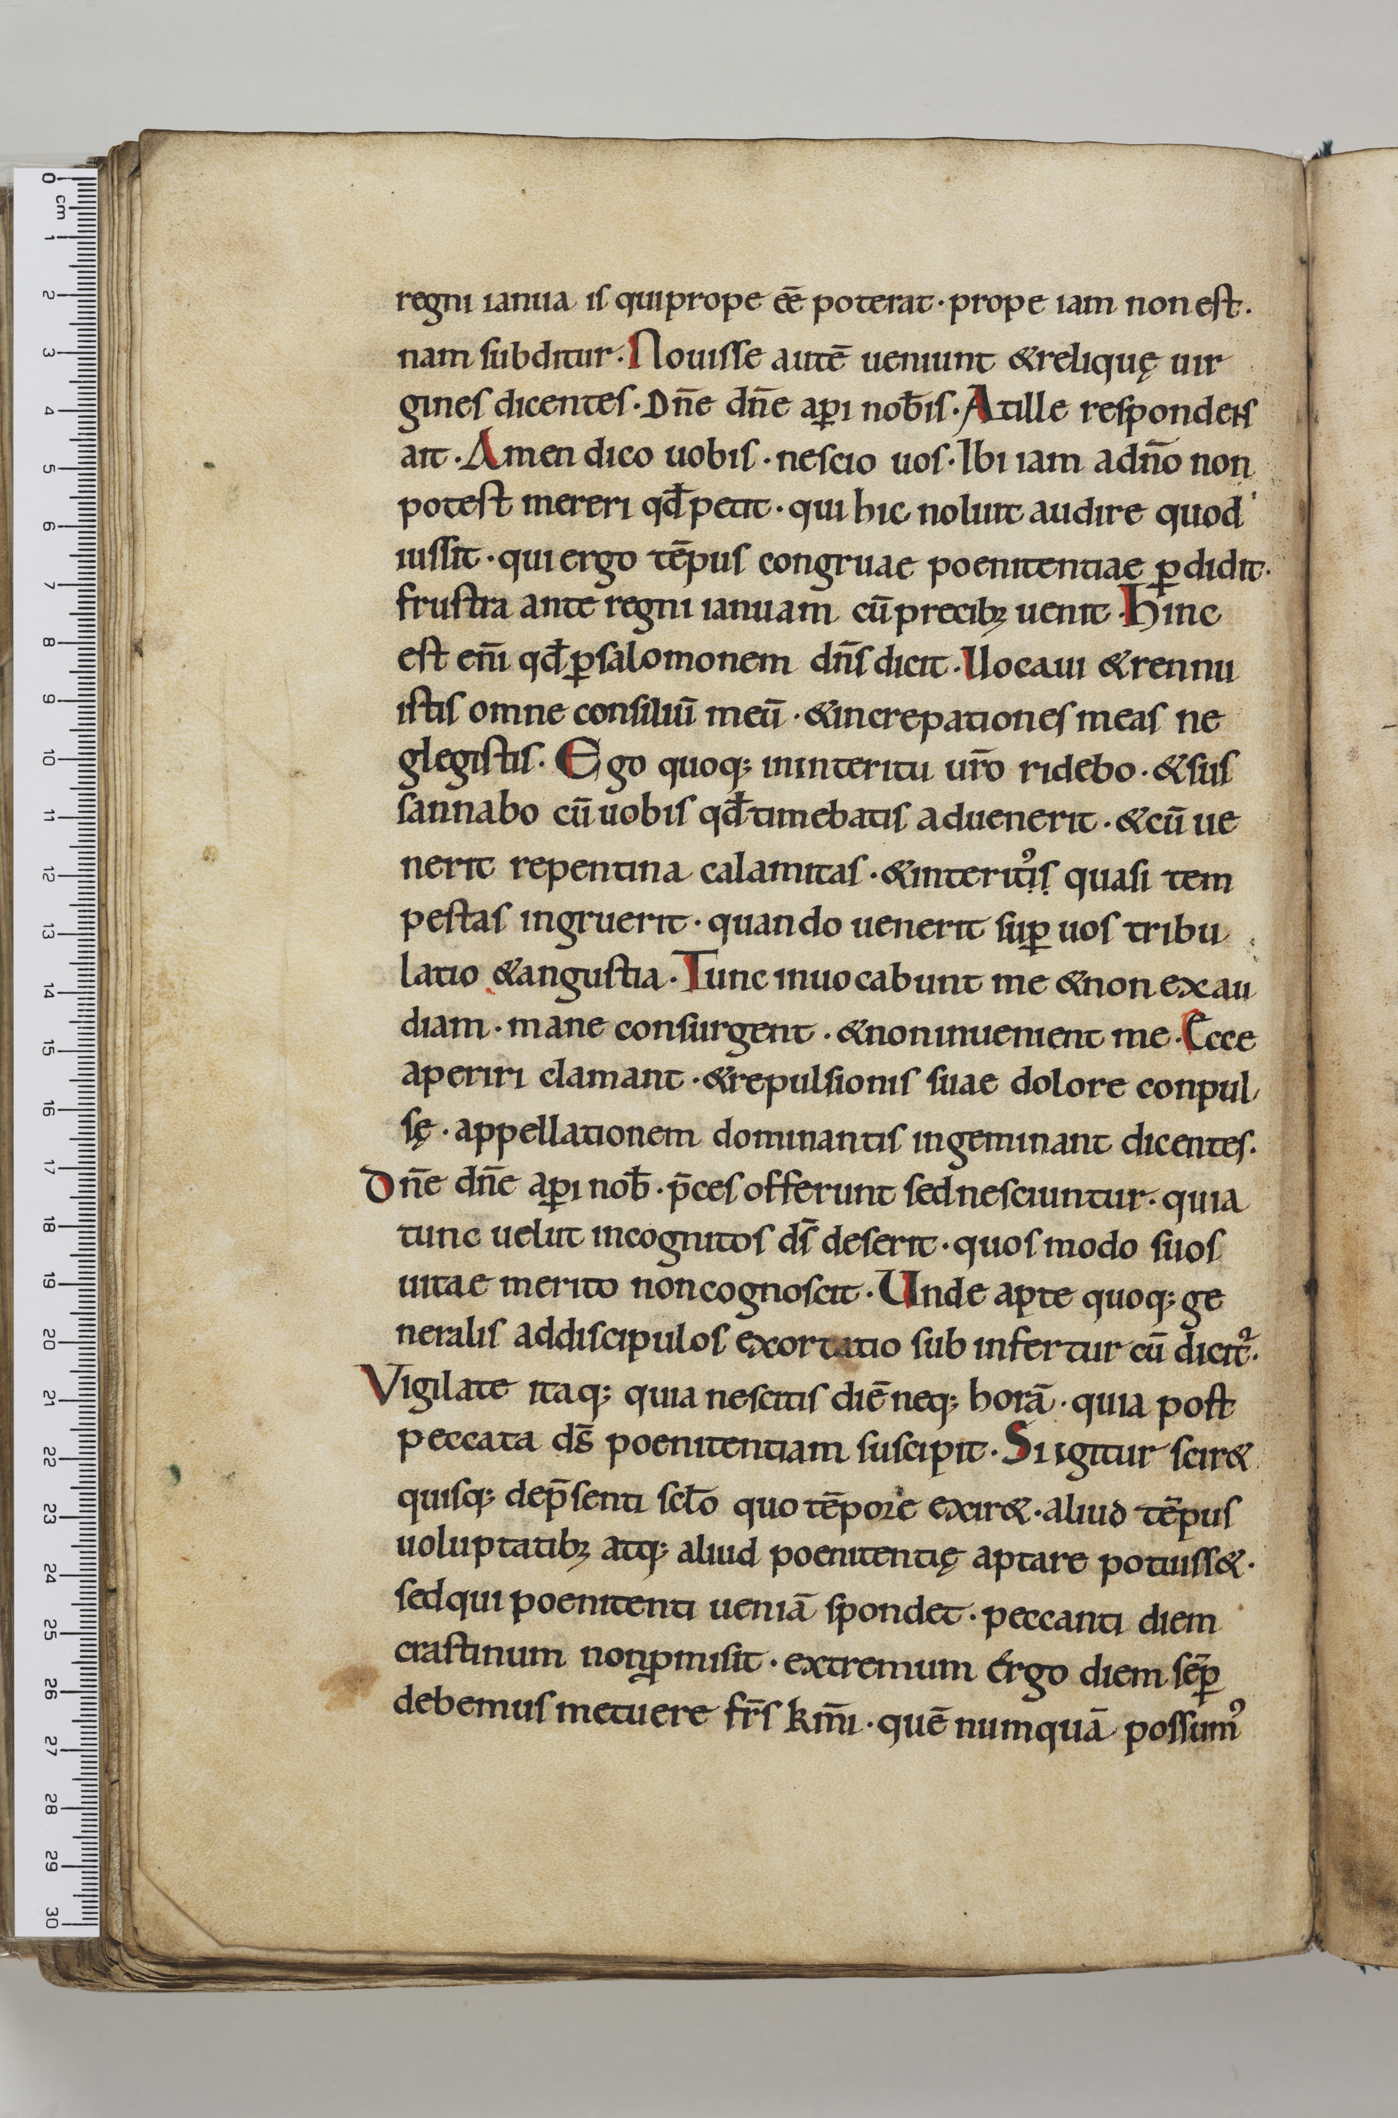 regni ianua is qui prope eē poterat · prope iam non est.
nam subditur. Nouisse autē ueniunt & reliquę uir
gines dicentes. Dn̄e dn̄e aꝑi nob̄is. At ille respondens
ait. Amen dico uobis · nescio uos. Ibi iam a dn̄o non
potest mereri qd̄ petit · qui hic noluit audire quod
iussit · qui ergo tēpus congruae poenitentiae ꝑdidit.
frustra ante regni ianuam cū precibꝫ uenit. Hinc
est eni̅ qd̄ ꝑ salomonem dn̄s dicit. Uocaui & rennu
istis omne consiliū meū · & increpationes meas ne
glegistis. Ego quoqꝫ in interitu ur̄o ridebo · & sus
sannabo cū uobis qd̄ timebatis aduenerit · & cū ue
nerit repentina calamitas · & interitꝰịṣ quasi tem
pestas ingruerit · quando uenerit suꝑ uos tribu
latio & angustia. Tunc inuocabunt me & non exau
diam · mane consurgent · & non inuenient me. Ecce
aperiri clamant · & repulsionis suae dolore conpul
sę · appellationem dominantis ingeminant dicentes.
Dn̄e dn̄e aꝑi nob̄ · p̄ces offerunt sed nesciuntur · quia
tunc uelut incognitos ds̄ deserit · quos modo suos
uitae merito non cognoscit. Unde apte quoqꝫ ge
neralis ad discipulos exortatio subinfertur cū dicit᷑.
Vigilate itaqꝫ quia nescitis diē neqꝫ horā · quia post
peccata ds̄ poenitentiam suscipit. Si igitur scir&
quisqꝫ de p̄senti scl̄o quo tēpore exir& · aliud tēpus
uoluptatibꝫ atqꝫ aliud poenitentię aptare potuiss&.
sed qui poenitenti ueniā spondet · peccanti diem
crastinum non ꝓmisit · extremum ergo diem sēꝑ
debemus metuere fr̄s km̄i · quē numquā possumꝰ
0 cm
1
2
3
4
5
6
7
8
9
10
11
12
13
14
15
16
17
18
19
20
21
22
23
24
25
26
27
28
29
30